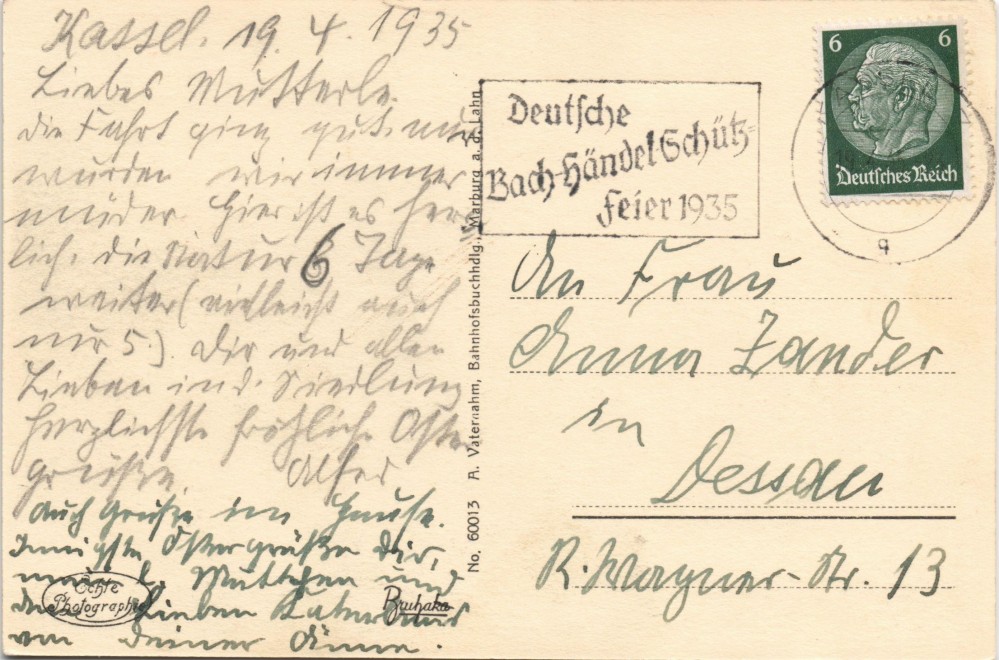 Kassel, 19. 4. 1935
Liebes Mutterle.
die Fahrt ging gut, nur
wurden wir immer
müder. Hier ist es herr-
lich, die Natur 6 Tage
weiter (vielleicht auch
nur 5.) Dir und allen
Lieben in d. Siedlung
herzlichste fröhliche Oster
grüße. Alfred
Auch Grüße im Hause.
Innigste Ostergrüße Dir,
mein l. Muttchen und
den Lieben
von Deiner Änne.
Echte
Photographie
Bruhaka
No. 60013 A. Vaternahm, Bahnhofsbuchhdlg., Marburg a. d. Lahn
Deutsche
Bach-Händel-Schütz-
Feier 1935
6 6
Deutsches Reich
q
An Frau
Anna Zander
in
Dessau
R. Wagner-Str. 13